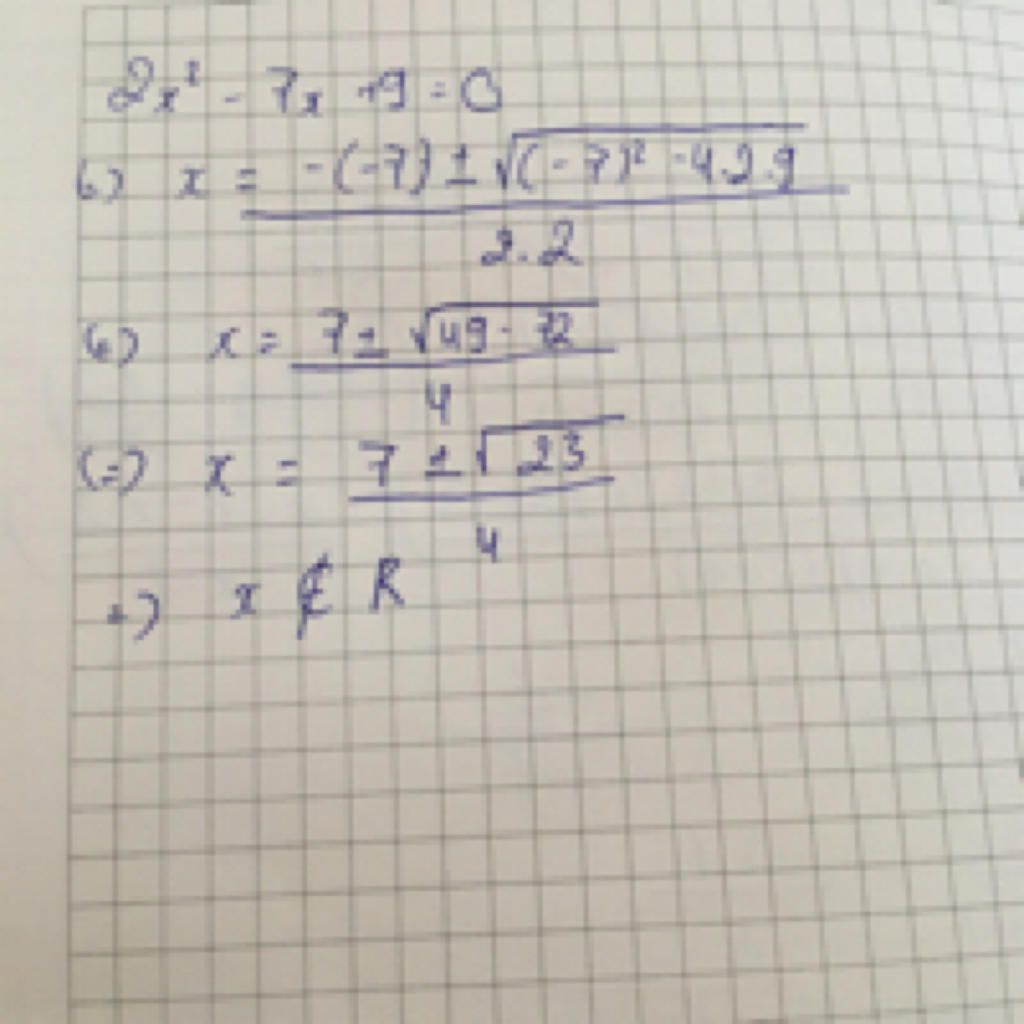 2x² - 7x +9 = 0
(=) x = -(-7) ± √(-7)² - 4.2.9 / 2.2
(=) x = 7 ± √49 - 72 / 4
(=) x = 7 ± √23 / 4
=) x ∉ R